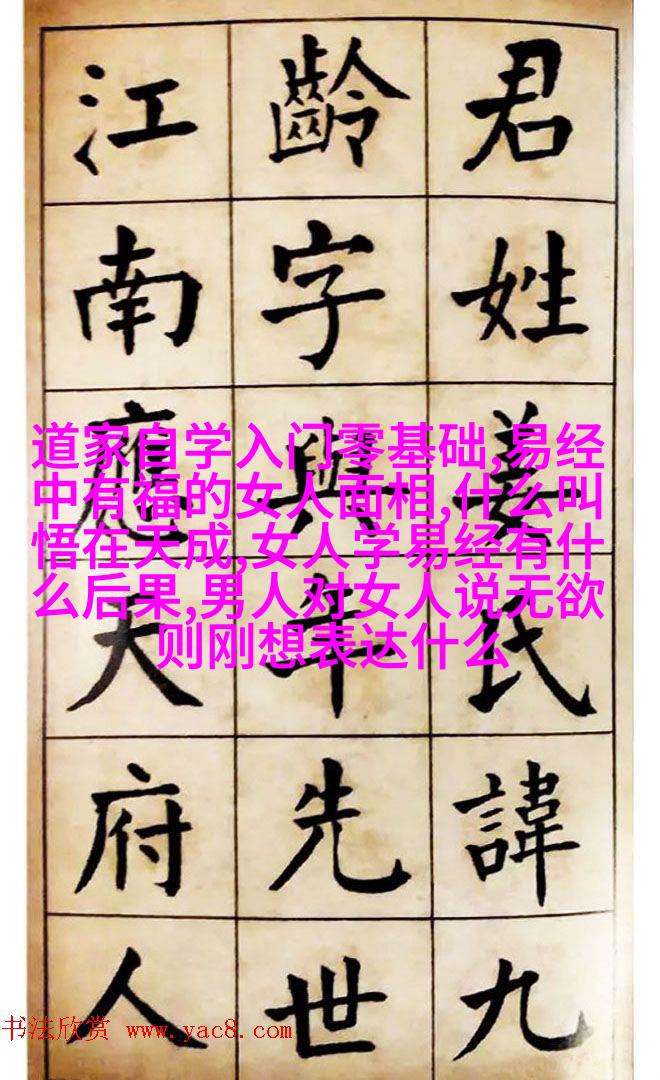 君姓姜氏諱九
齡字與年先世
江南應天府人
道家自学入门零基础,易经
中有福的女人面相,什么叫
悟在天成,女人学易经有什
么后果,男人对女人说无欲
则刚想表达什么
书法欣赏 www.yac8.com